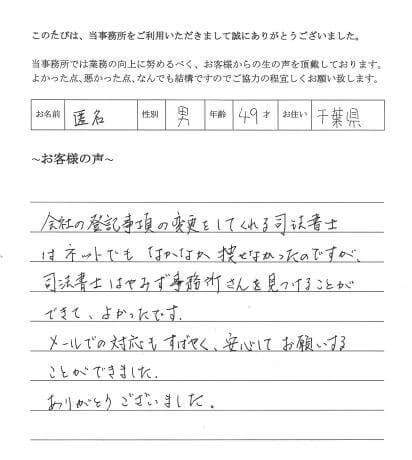 このたびは、当事務所をご利用いただきまして誠にありがとうございました。
当事務所では業務の向上に努めるべく、お客様からの生の声を頂戴しております。
よかった点、悪かった点、なんでも結構ですのでご協力の程宜しくお願い致します。
お名前 匿名 性別 男 年齢 49才 お住い 千葉県
~お客様の声~
会社の登記事項の変更をしてくれる司法書士
はネットでも なかなか 探せなかったのですが、
司法書士はやみず事務所さんを見つけることが
できて、よかったです。
メールでの対応もすばやく、安心して お願いする
ことができました.
ありがとうございました。